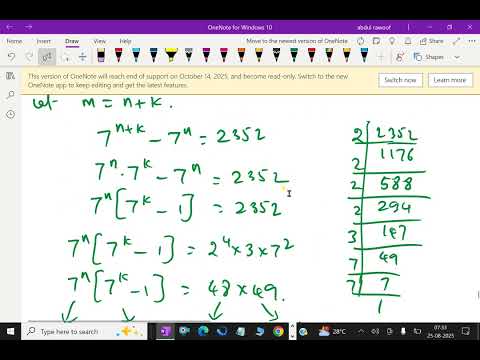 OneNote for Windows 10
abdul rawoof
File Home Insert Draw View Help
Move to the newer version of OneNote
This version of OneNote will reach end of support on October 14, 2025, and become read-only. Switch to the new
OneNote app to keep editing and get the latest features.
Switch now
Learn more
let m = n+k.
7^{n+k} - 7^n = 2352
7^n . 7^k - 7^n = 2352
7^n [7^k - 1] = 2352
7^n [7^k - 1] = 2^4 × 3 × 7^2
7^n [7^k - 1] = 48 × 49.
2 | 2352
2 | 1176
2 | 588
2 | 294
3 | 147
7 | 49
7 | 7
1
Type here to search
28°C
07:33
25-08-2025